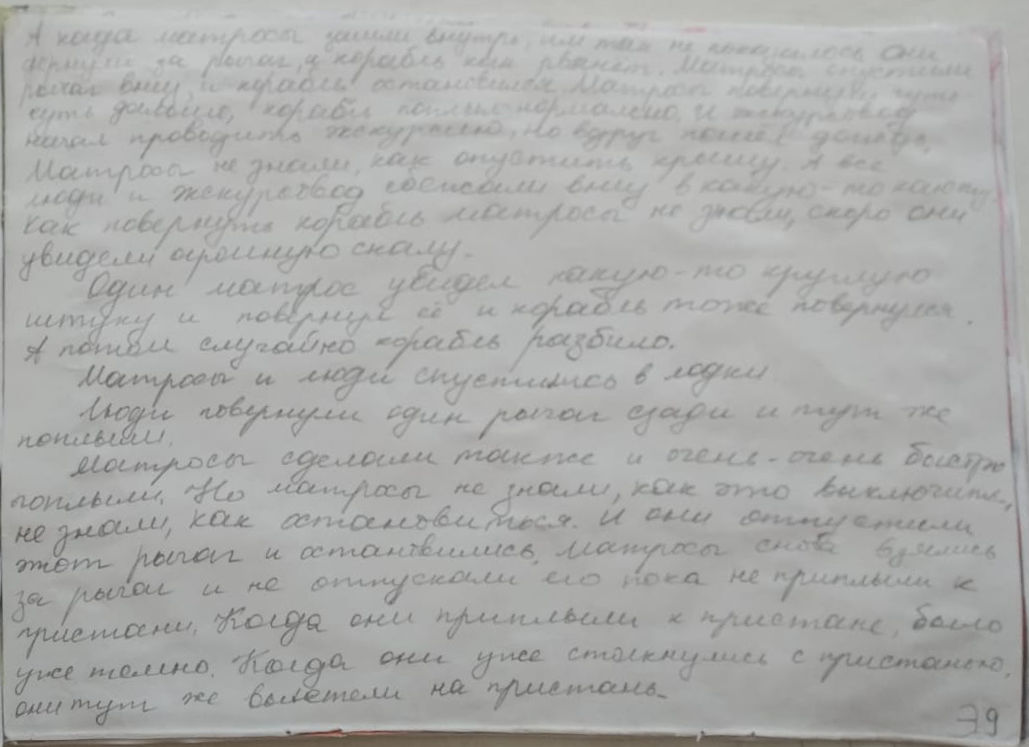 А когда матросы зашли внутрь, им так не показалось они
дёрнули за рычаг, а корабль как рванёт. Матросы опустили
рычаг вниз, и корабль остановился. Матросы повернули чуть
чуть дальше, корабль поплыл нормально. И экскурсовод
начал проводить экскурсию, но вдруг пошёл дождь.
Матросы не знали, как опустить крышу. А все
люди и экскурсовод сбежали вниз в какую-то каюту
как повернуть корабль матросы не знали, скоро они
увидели огромную скалу.
Один матрос увидел какую-то круглую
штуку и повернул её и корабль тоже повернулся.
А потом случайно корабль разбило.
Матросы и люди спустились в лодки
Люди повернули один рычаг сзади и тут же
поплыли.
Матросы сделали также и очень-очень быстро
поплыли. Но матросы не знали, как это выключить,
не знали, как остановиться. И они отпустили
этот рычаг и остановились. Матросы снова взялись
за рычаг и не отпускали его пока не приплыли к
пристани. Когда они приплыли к пристане, было
уже темно. Когда они уже столкнулись с пристанью,
они тут же вылетели на пристань.
39